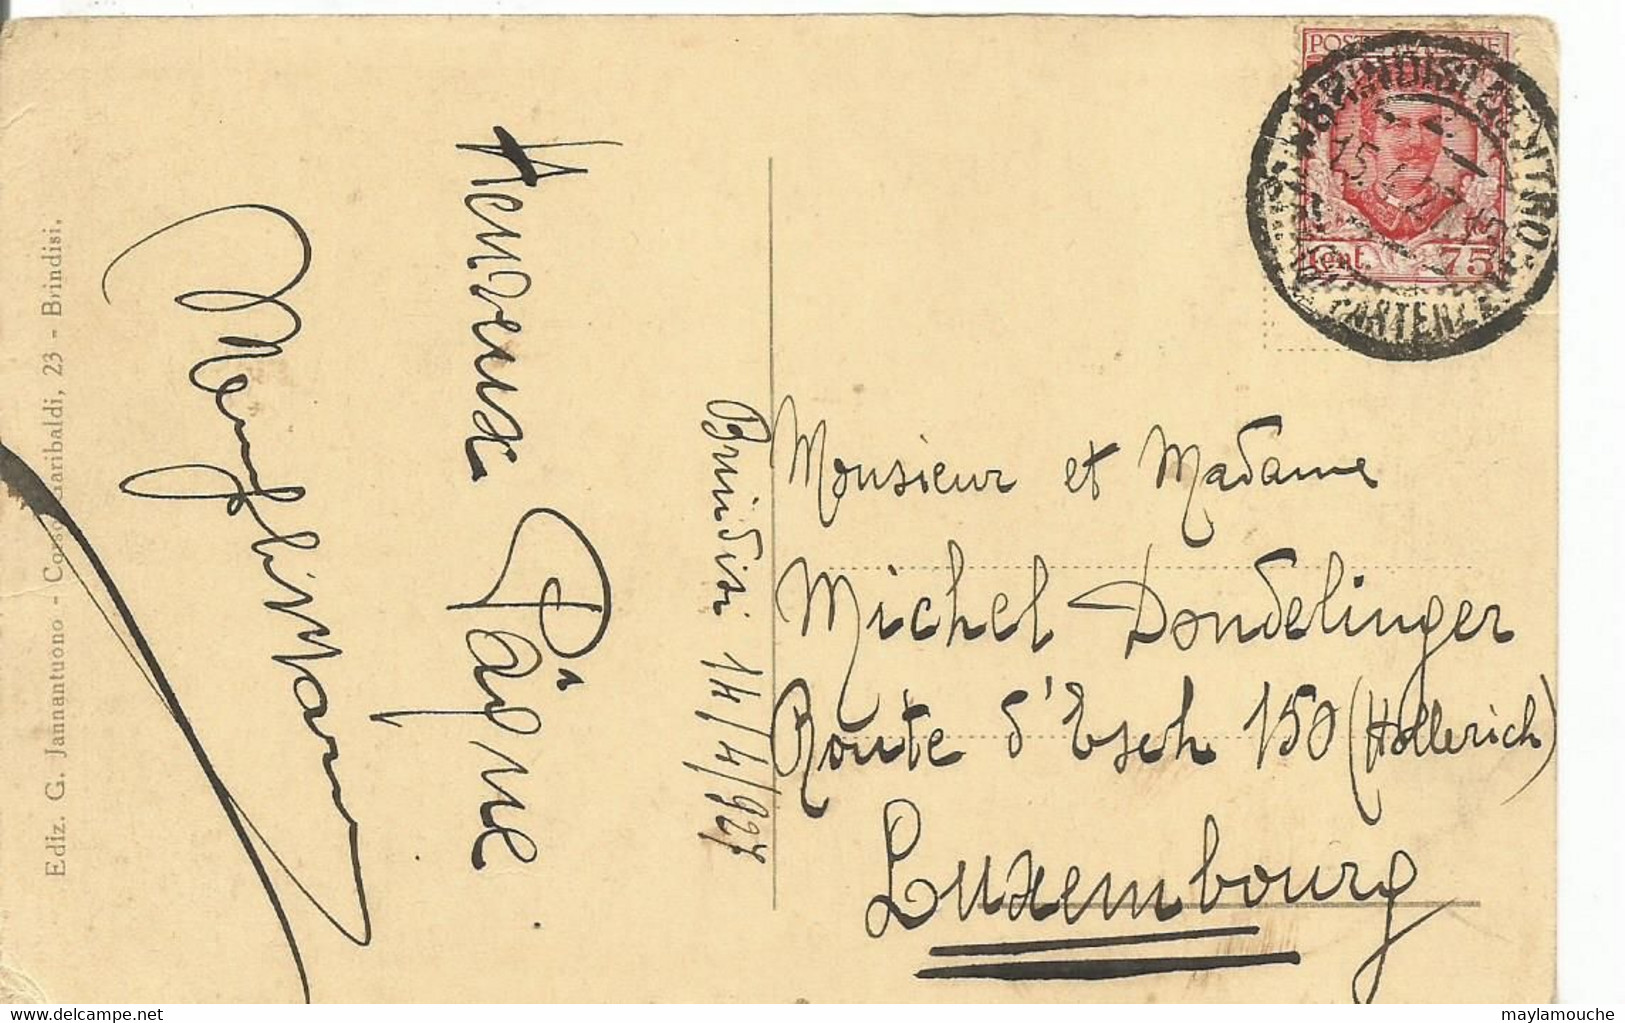 POSTE ITALIANE
BRINDISI CENTRO
15.4.27
PARTENZE
Cent. 75
Heureuse Pâque
Brindisi 14/4/927
Monsieur et Madame
Michel Dondelinger
Route d'Esch 150 (Hollerich)
Luxembourg
Ediz. G. Jannantuono - Corso Garibaldi, 23 - Brindisi.
maylamouche